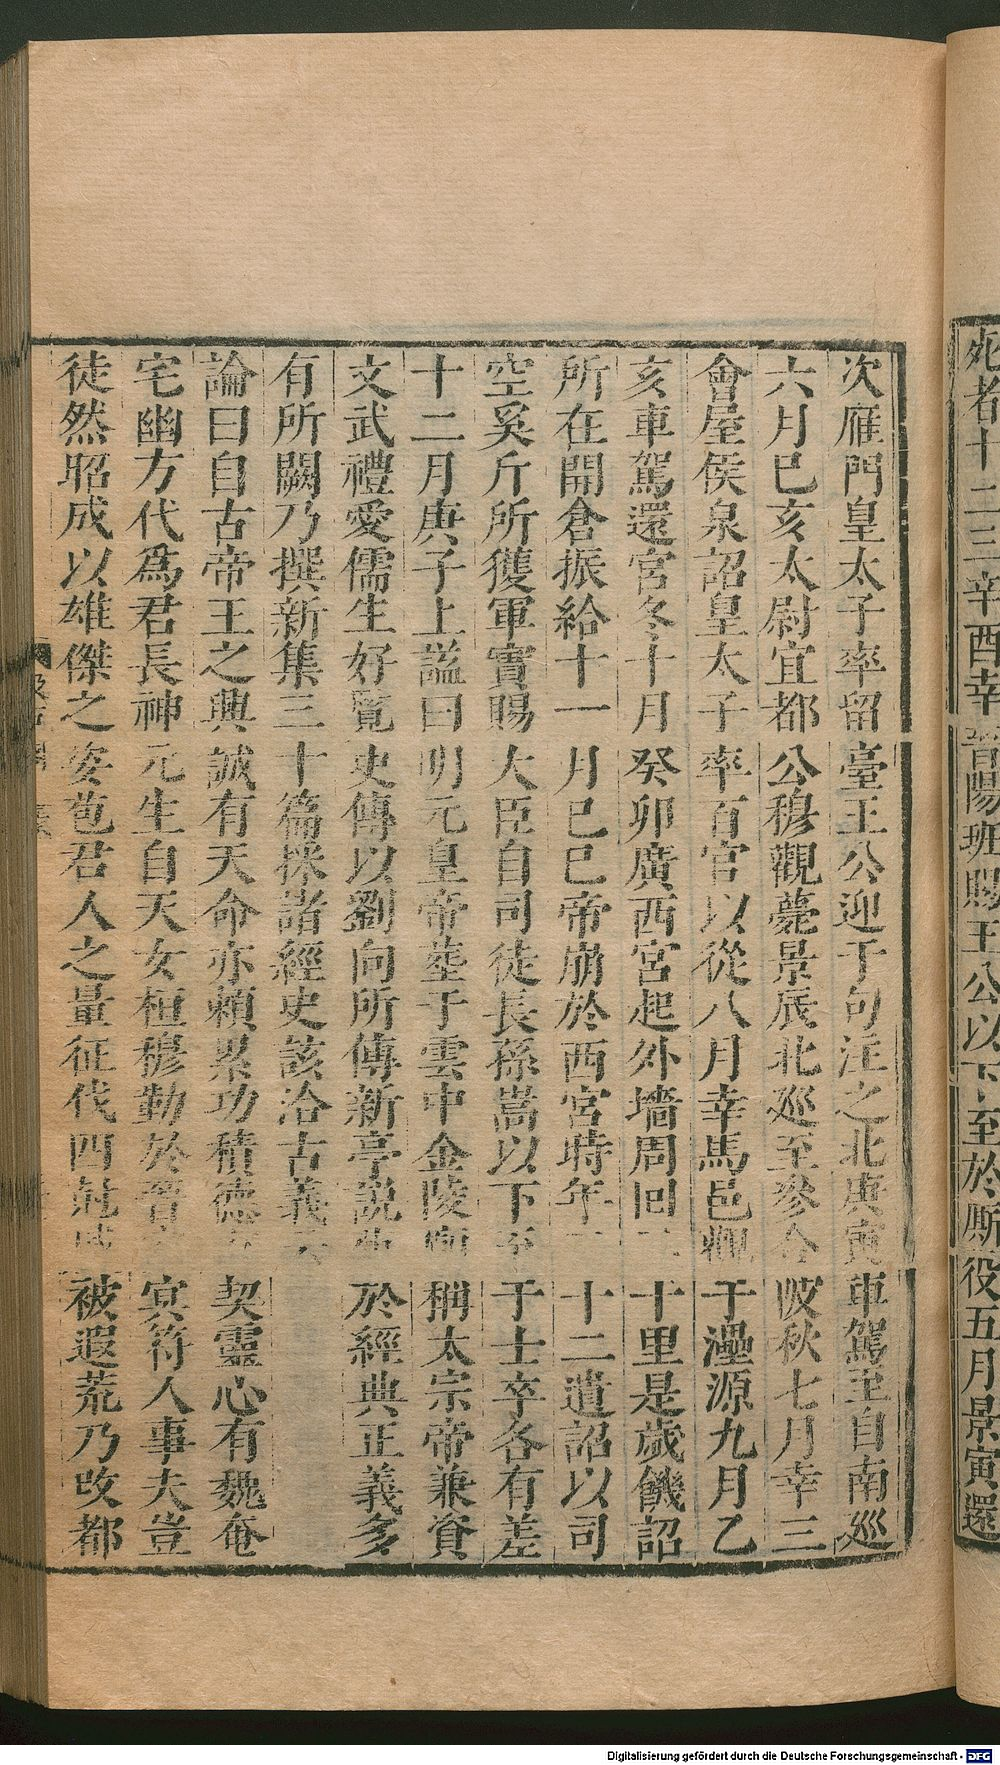 死者十二三辛酉幸晉陽班賜王公以下至於厮役五月景寅還
次雁門皇太子率留臺王公迎于句注之北庚寅車駕至自南巡
六月己亥太尉宜都公穆觀薨景辰北巡至參合陂秋七月幸三
會屋侯泉詔皇太子率百官以從八月幸馬邑觀于灅源九月乙
亥車駕還宮冬十月癸卯廣西宮起外墻周回二十里是歲饑詔
所在開倉振給十一月己巳帝崩於西宮時年十二遺詔以司
空奚斤所獲軍實賜大臣自司徒長孫嵩以下至于士卒各有差
十二月庚子上謚曰明元皇帝葬于雲中金陵廟稱太宗帝兼資
文武禮愛儒生好覽史傳以劉向所傳新序說苑於經典正義多
有所闕乃撰新集三十篇採諸經史該洽古義云
論曰自古帝王之興誠有天命亦賴累功積德方契靈心有魏奄
宅幽方代爲君長神元生自天女桓穆勤於晉室冥符人事夫豈
徒然昭成以雄傑之姿苞君人之量征伐四剋威被遐荒乃改都
Digitalisierung gefördert durch die Deutsche Forschungsgemeinschaft - DFG